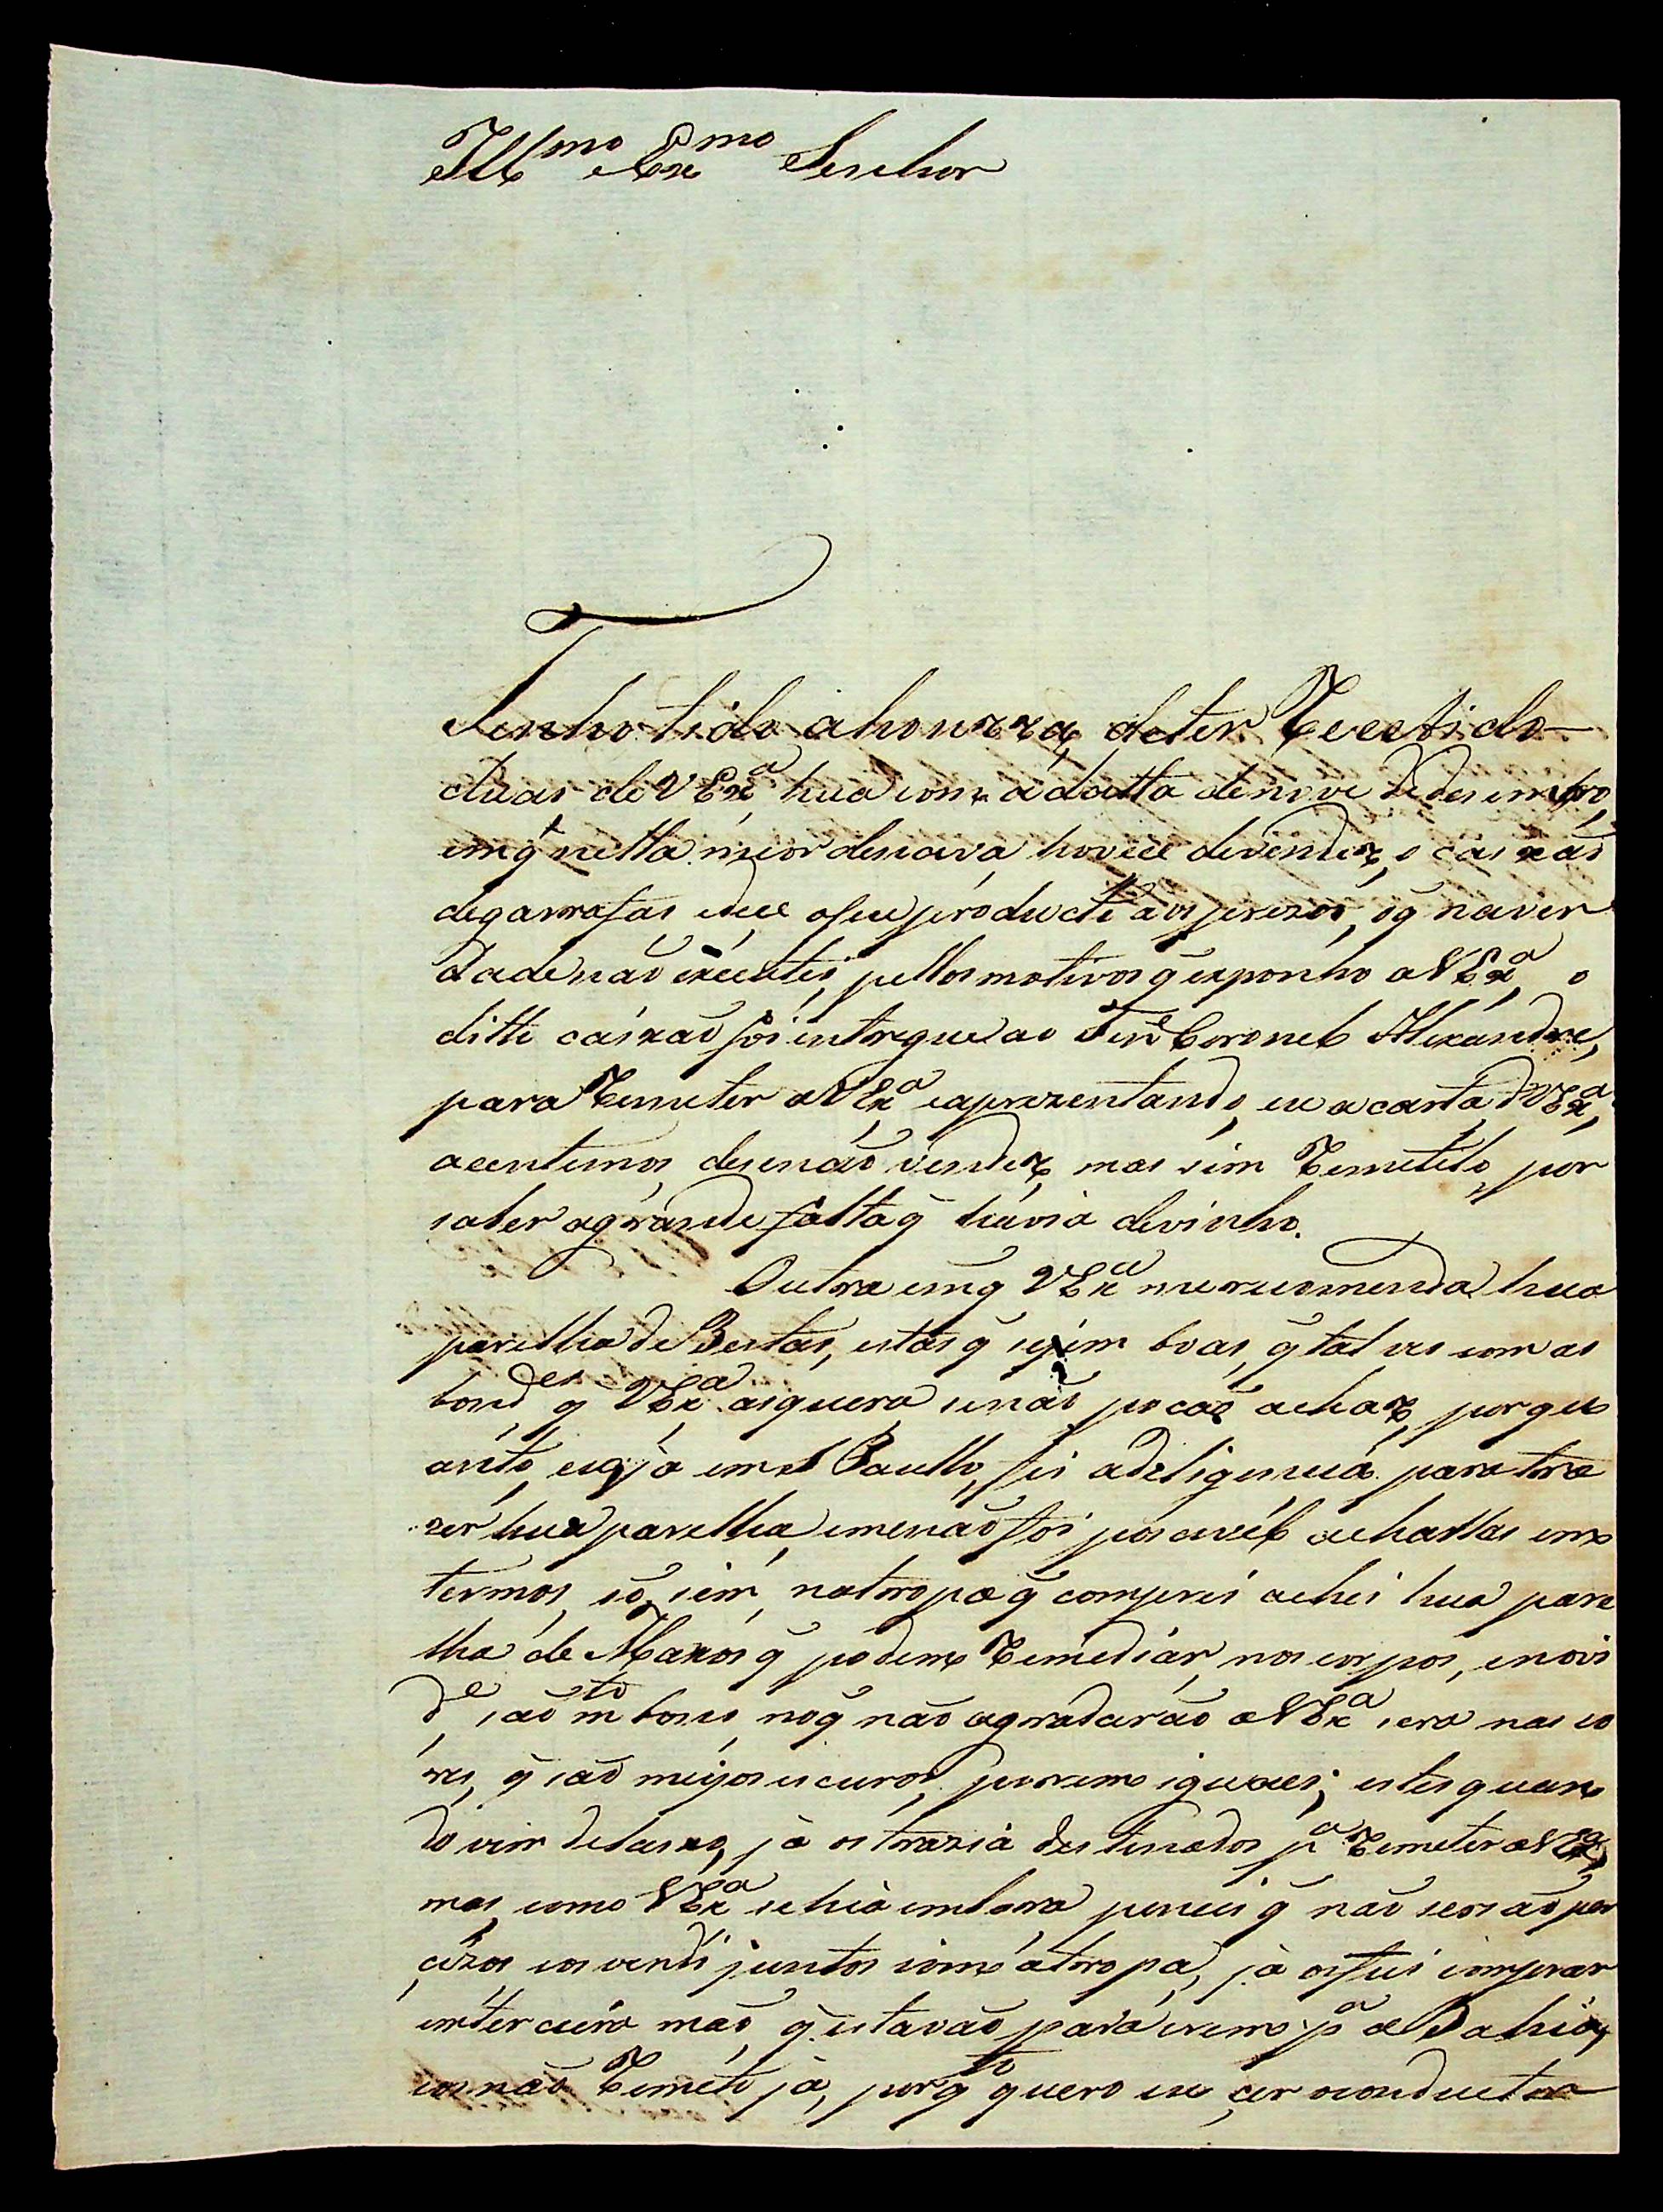 Illmo e Exmo Senhor
Tenho tido ahonrra deter Recebido
duas de VExa hua com adatta denove Dedesembro
emq̃ nella meordenava houvece devender o caixaõ
degarrafas edece oseuproducto aosprezos, oq̃ naver
dadenaõ exzecutei, pellosmotivos q̃ exponho aVExa o
ditto caixaõ foi entregue ao Tene Coronel Alexandre,
para Remeter aVExa eaprezentando eu acarta dVExa,
acentemos desenaõ vender, mas sim Remetelo, por
saber agrande falta q̃ havia devinho.
Outra emq̃ VExa merecomenda hua
parelha de Bestas, estas q̃ sejem boas, q̃ tal ves com as
bondes q̃ VExa asquera senaõ pocaõ achar, porqu
anto, euja em S Paullo, fis adeligencia para tra
zer hua parelha, emenaõ foi posivel achallas em
termos, só sim, natropa q̃ comprei achei hua pare
lha de Maxos q̃ podem Remediar, nos corpos, enovi
de, saõ mto bons, noq̃ não agradaraõ aVExa sera nas co
res, q̃ saõ meijos escuros, porem iguaes; estes quan
do vim debaixo, já ostrazia destinados pa Remeter aVExa,
mas como VExa sehia embora pencei q̃ naõ seraõ per
cizos eosvendi juntos com atropa, já osfui comprar
emterceira maõ, q̃ estavaõ para irem pa aBahia,
eosnaõ Remeto já, porqto quero eu çer oconductor